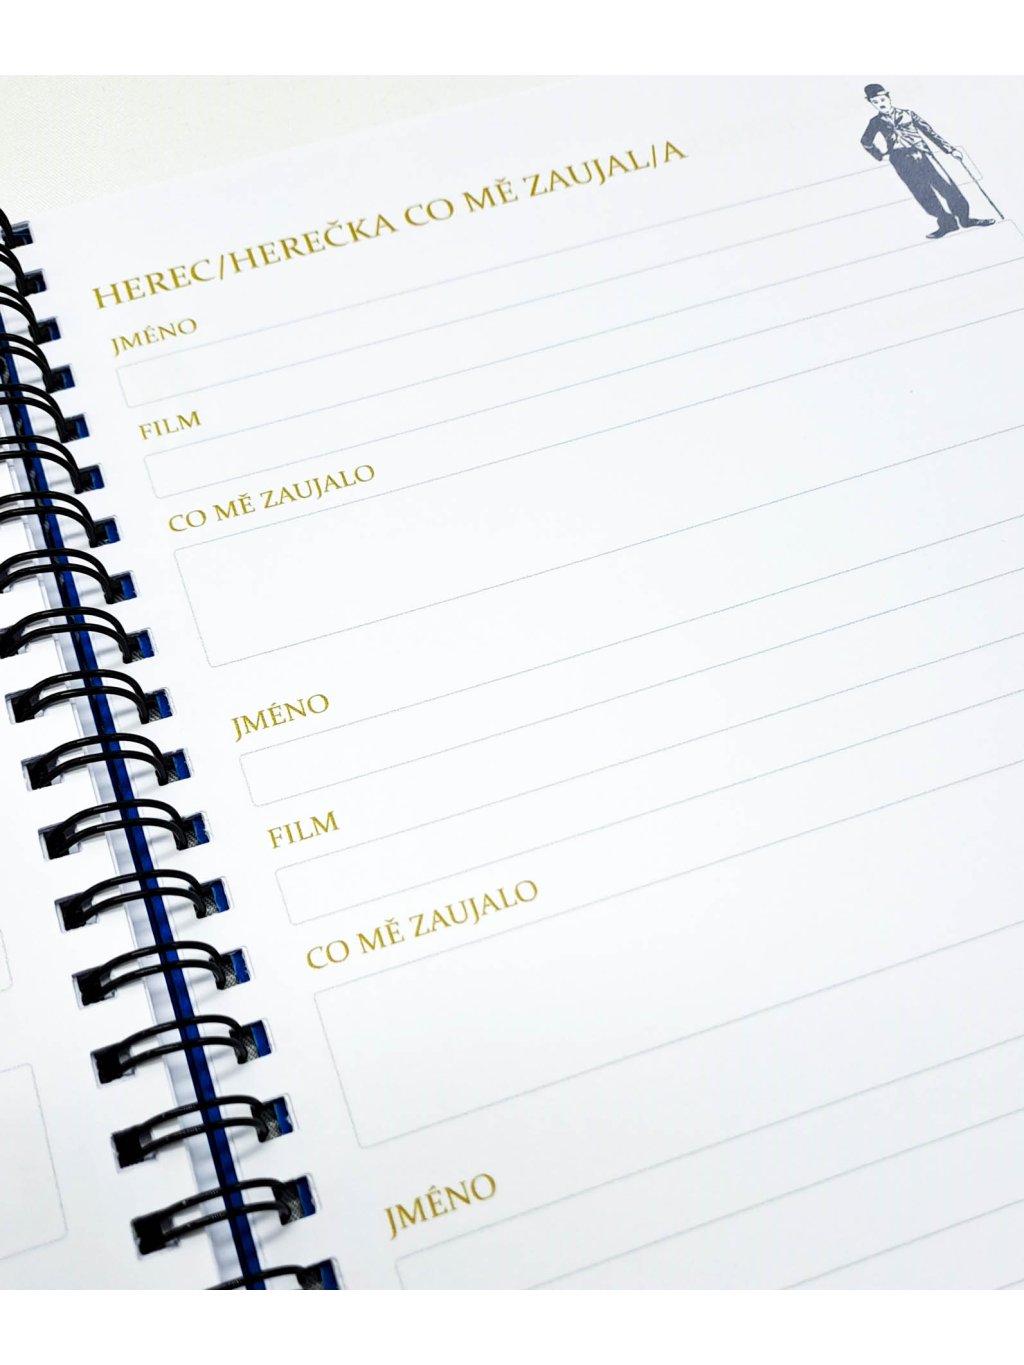 HEREC/HEREČKA CO MĚ ZAUJAL/A
JMÉNO
FILM
CO MĚ ZAUJALO
JMÉNO
FILM
CO MĚ ZAUJALO
JMÉNO